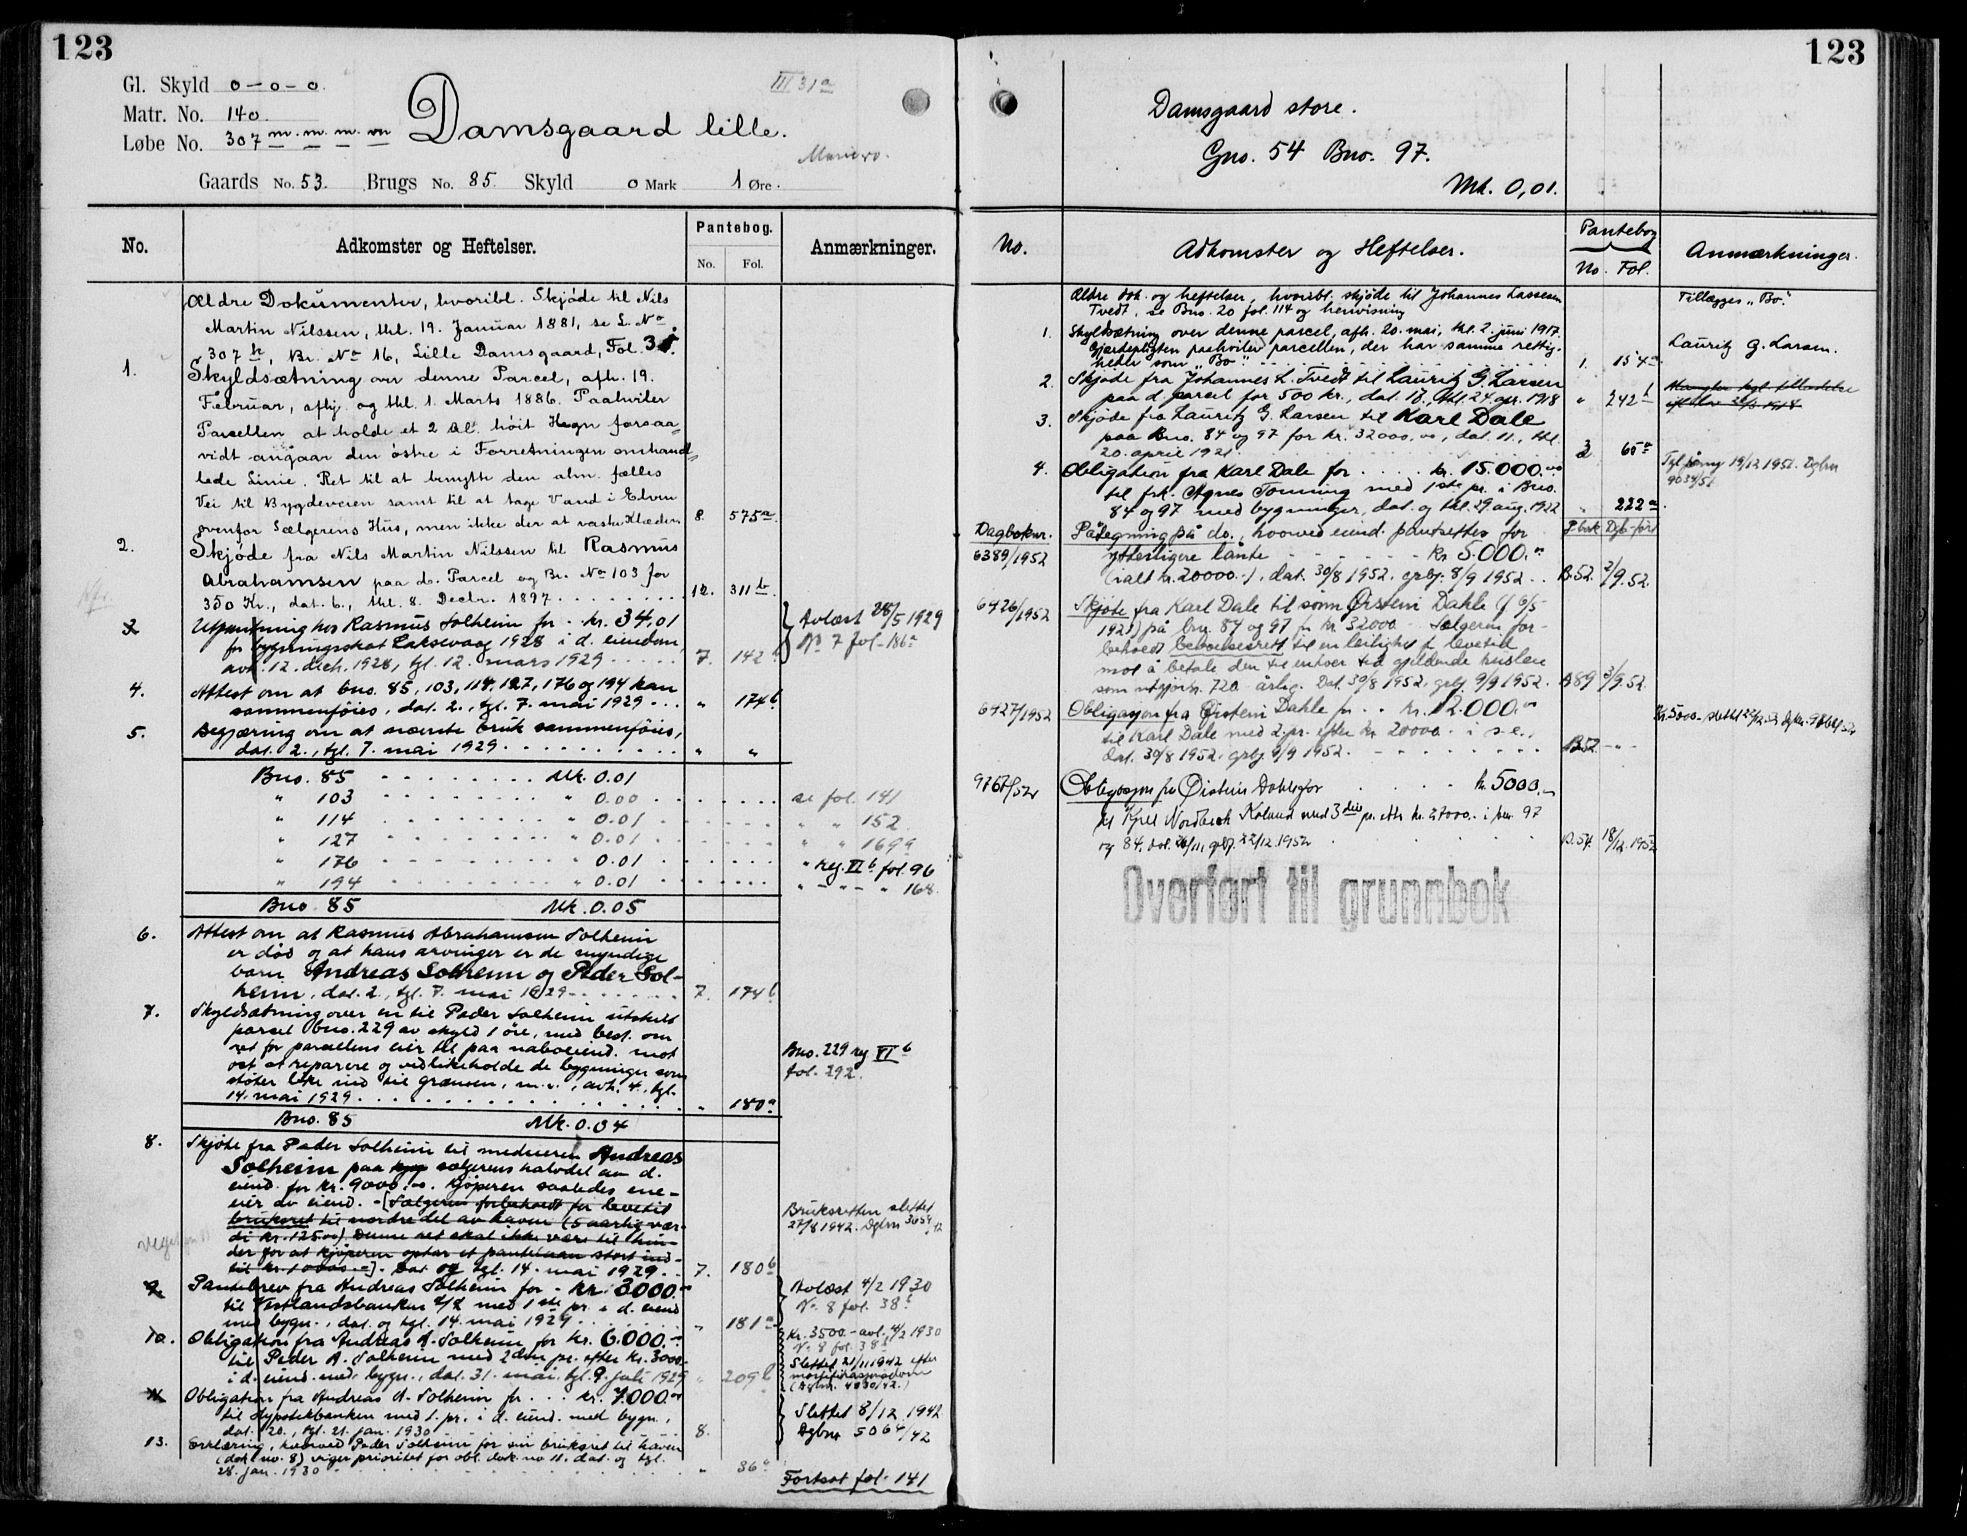 123
Gl. Skyld 0-0-0
III 31a
Matr. No. 140
Løbe No. 307 m. m. m. vn
Damsgaard lille.
Gaards No. 53. Brugs No. 85 Skyld 0 Mark 1 Øre.
No. Adkomster og Heftelser. Pantebog. Anmærkninger.
No. Fol.
Ældre Dokumenter, hvoribl. Skjøde til Nils
Martin Nilssen, thl. 19. Januar 1881, se L. No
307 h, Br. No 16, Lille Damsgaard, Fol. 35.
1. Skyldsætning over denne Parcel, afh. 19.
Februar, afhj. og thl. 1. Marts 1886. Paahviler
Parcellen at holde et 2 Al. höit Hegn forsaa-
vidt angaar den østre i Forretningen omhand-
lede Linie. Ret til at benytte den alm. fælles
Vei til Bygdeveien samt til at tage Vand i Elven
ovenfor Sælgerens Hus, men ikke der at vaske Klæder. 8. 575a
2. Skjøde fra Nils Martin Nilssen til Rasmus
Abrahamsen paa d. Parcel og Br. No 103 for
350 Kr., dat. 6., thl. 8. Decbr. 1897 . . . . . . . . 12. 311b
3. Utpantning hos Rasmus Solheim for kr. 34,01
for bygningsskat Laksevaag 1928 i d. eiendom,
avh. 12. dech. 1928, tgl. 12. mars 1929 . . . . . 7. 142b
Avlæst 28/5 1929
No 7 fol. 186a
4. Attest om at bno. 85, 103, 114, 127, 176 og 194 kan
sammenføies, dat. 2., tgl. 7. mai 1929 . . . " 174b
5. Begjæring om at nævnte bruk sammenføies,
dat. 2., tgl. 7. mai 1929 . . . . . . . . . . " "
Bno. 85 - - - - - - - - Mk. 0.01
" 103 - - - - - - - - " 0.00 . . . . . . . se fol. 141
" 114 - - - - - - - - " 0.01 . . . . . . . " " 152
" 127 - - - - - - - - " 0.01 . . . . . . . " " 169a
" 176 - - - - - - - - " 0.01 . . . . . . . " reg. VI b fol. 96
" 194 - - - - - - - - " 0.01 . . . . . . . " - " - " - " 168.
Bno. 85 Mk. 0.05
6. Attest om at Rasmus Abrahamsen Solheim
er død og at hans arvinger er de myndige
barn Andreas Solheim og Peder Sol-
heim, dat. 2., tgl. 7. mai 1929 . . . . . . 7. 174b
7. Skyldsætning over en til Peder Solheim utskilt
parcel bno. 229 av skyld 1 öre, med best. om
ret for parcellens eier til paa naboeiend. mot
øst at reparere og vedlikeholde de bygninger som
støter like ind til grænsen, m.v., avh. 4., tgl.
14. mai 1929 . . . . . . . . . . . . . . . . . " 180a
Bno. 229 reg VI b
fol. 292.
Bno. 85 Mk. 0.04
8. Skjøte fra Peder Solheim til medeieren Andreas
Solheim paa sælgerens halvdel av d.
eiend. for kr. 9000.00. Kjøperen saaledes ene-
eier av eiend. - [Sælgeren forbeholdt for levetid
bruksret til nordre del av haven (5 aarlig vær-
di kr. 125.00) Denne ret skal ikke være til hin-
der for at kjøperen optar et pantelaan stort ind-
til kr. 10000.-]. Dat og tgl. 14. mai 1929 . . 7. 180b
Bruksretten slettet
27/8 1942. Dgbnr 3654/42
9. Pantebrev fra Andreas Solheim for - kr. 3000.-
til Vestlandsbanken A/S med 1ste pr. i d. eiend
med bygn., dat. og tgl. 14. mai 1929 . . . . . . " 181a
Avlæst 4/2 1930
No. 8 fol. 38b
10. Obligation fra Andreas A. Solheim for kr. 6.000.-
til Peder A. Solheim med 2den pr. efter kr. 3000.-
i d. eiend. med bygn., dat. 31. mai, tgl. 9. juli 1929 " 209b
Kr. 3500.- avl. 4/2 1930
No. 8 fol. 38b
Slettet 21/11 1942 efter
mortifikasjonsdom
(Dgbnr. 4830/42.)
11. Obligation fra Andreas A. Solheim for . . . kr. 7.000.00
til Hypotekbanken med 1. pr. i d. eiend. med bygn.,
dat. 20., tgl. 21. jan. 1930 . . . . . . . 8.
Slettet 8/12 1942
Dgbnr 5064/42
13. Erklæring, hvorved Peder Solheim for sin bruksret til haven
(dok. no. 8) viger prioritet for obl. dok. no 11, dat. og tgl.
28. jan. 1930 . . . . . . . . . . " 36a
Fortsat fol. 141
123
Damsgaard store.
Gno. 54 Bno. 97.
Mk. 0,01.
No. Adkomster og Heftelser. Pantebog Anmærkninger.
No. Fol.
Ældre dok. og heftelser, hvoribl. skjøde til Johannes Lassesen
Tvedt, se Bno. 20 fol. 114 og henvisning
Tillægges "Bo."
1. Skyldsætning over denne parcel, afh. 20. mai, thl. 2. juni 1917.
Gjærdepligten paahviler parcellen, der har samme rettig-
heter som "Bo" . . . . . . . . 1. 154a
Lauritz G. Larsen.
2. Skjøde fra Johannes L. Tvedt til Lauritz G. Larsen
paa d. parcel for 500 kr., dat. 18., thl. 24. apr. 1918 " 242b
3. Skjøde fra Lauritz G. Larsen til Karl Dale
paa Bno. 84 og 97 for kr. 32000,00, dat. 11., thl.
20. april 1921 . . . . . . . . . . 3. 65a
4. Obligation fra Karl Dale for . . . . kr. 15.000.00
til frk. Agnes Tonning med 1ste pr. i Bno.
84 og 97 med bygninger, dat. og thl. 29. aug. 1922 " 222a
19/12 1951. Dgbnr
9034/51
Dagboknr. Påtegning på do., hvorved eiend. pantsettes for P.bok Dgb-ført
6389/1952 ytterligere lånte - - - - - - kr 5.000.00
(ialt kr. 20000.-), dat. 30/8 1952, grbf. 8/9 1952 . . B.52. 2/9.52.
6426/1952 Skjøte fra Karl Dale til sønn Øistein Dahle (f 6/5
1921) på bnr. 84 og 97 for kr 32000.- Selgeren for-
beholdt beboelsesrett til en leilighet f. levetid
mot å betale den til enhver tid gjeldende husleie
som utgjør kr. 720.- årlig. Dat. 30/8 1952, grbf 9/9 1952. B89 3/9.52.
6427/1952 Obligasjon fra Øistein Dahle for . . kr. 12.000.00
til Karl Dale med 2. pr. efter kr 20000.- i s.e.,
dat. 30/8 1952, grbf 9/9 1952. - - - - - - - B52 - " -
Kr. 5000.- slettet 22/12.52 Dgbnr. 9766/52
9767/52 Obligasjon fra Øistein Dahle for . . . . . kr 5000.-
til Kjell Nordbech Koland med 3die pr. etter kr. 27000.- i bnr. 97
og 84, dat. 26/11, grbf. 22/12.1952 . . . . B.54. 18/12.1952
Overført til grunnbok